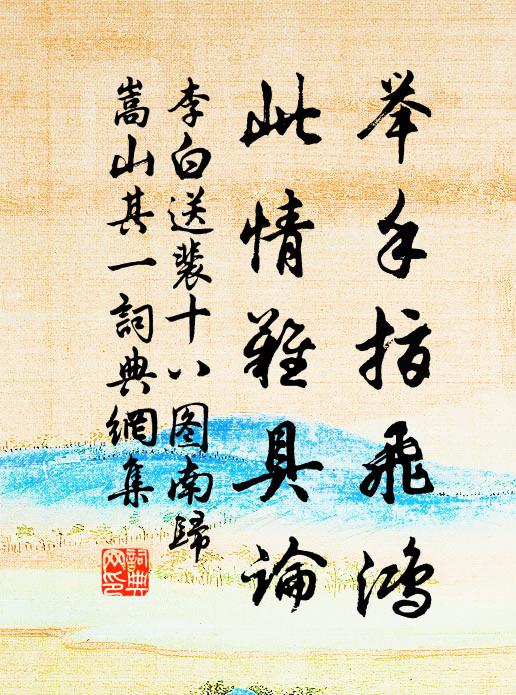 举手指飛鴻
此情難具論
李白送裴十八图南歸
嵩山其一詞典網集
詞典网印